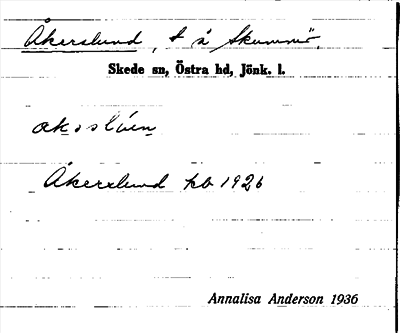 Åkerslund, t å Skummeö.
Skede sn, Östra hd, Jönk. l.
Åkerslund kb 1926
Annalisa Anderson 1936